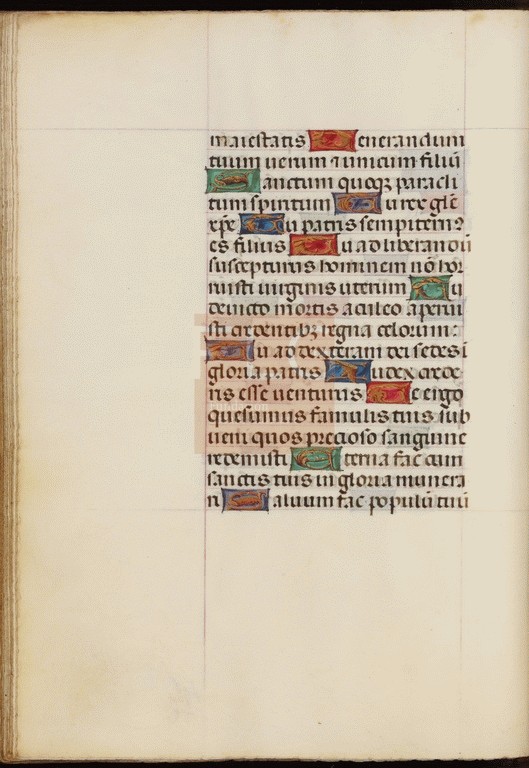 maiestatis Venerandum
tuum uerum ⁊ unicum filiū
Sanctum quoqꝫ paracli
tum spiritum Tu rex glē
xp̄e Tu patris sempitern⁹
es filius Tu ad liberandū
suscepturus hominem nō hor
ruisti uirginis uterum Tu
deuicto mortis aculeo aperui
sti credentibꝫ regna celorum:
Tu ad dexteram dei sedes ī
gloria patris Iudex crede
ris esse uenturus Te ergo
quesumus famulis tuis sub
ueni quos precioso sanguine
redemisti Eterna fac cum
sanctis tuis in gloria munera
ri Saluum fac populū tuū